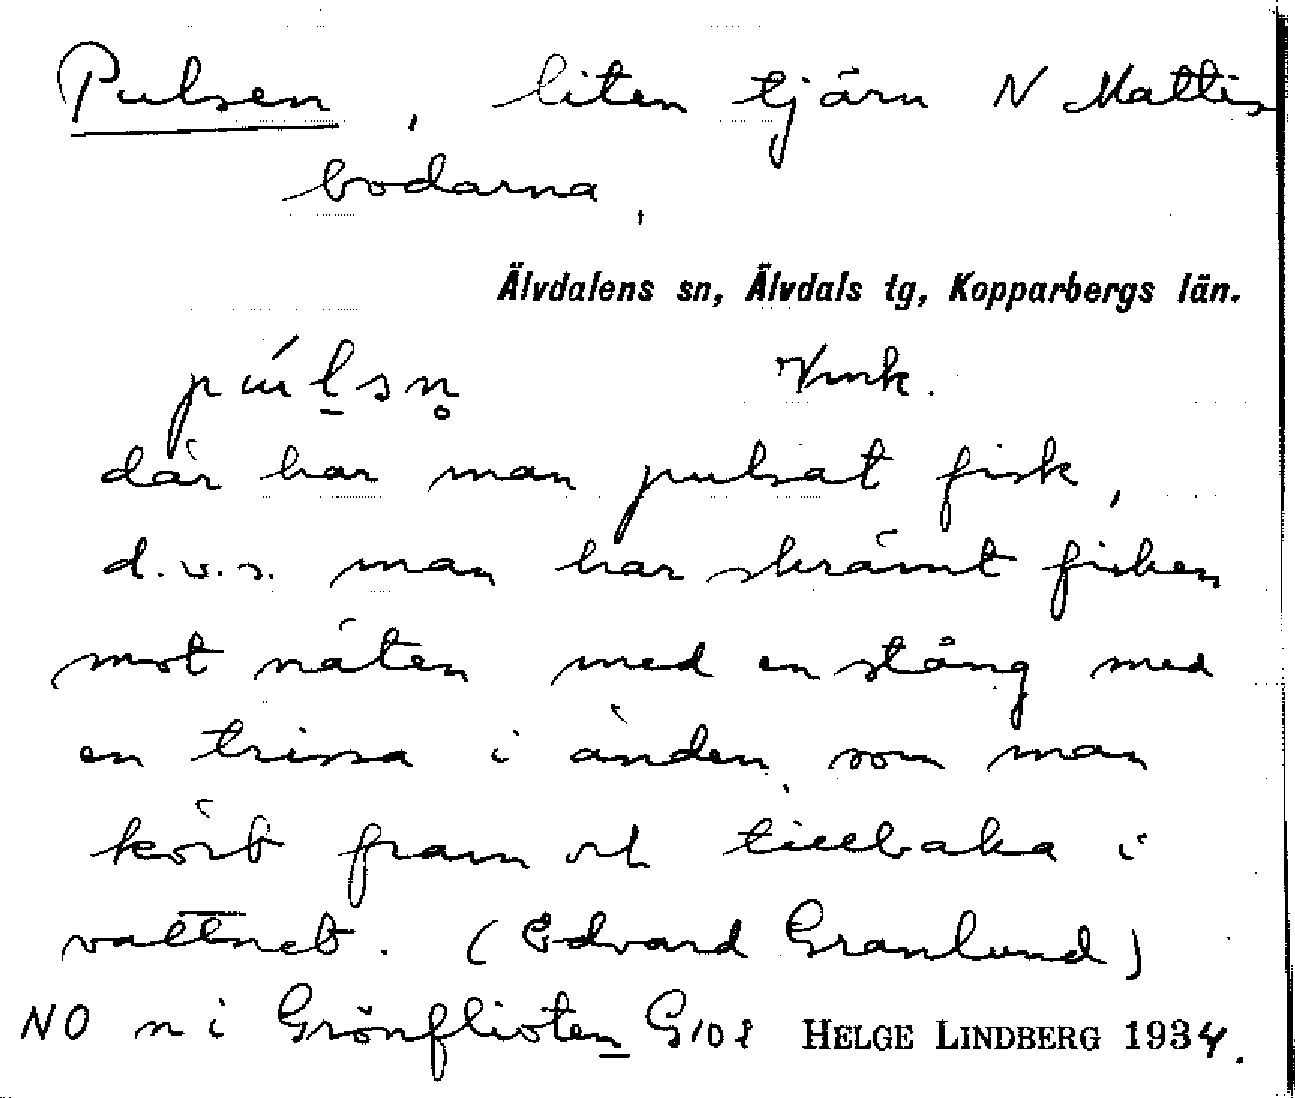 Pulsen, liten tjärn N Mattis
bodarna.
Älvdalens sn, Älvdals tg, Kopparbergs län.
där har man pulsat fisk,
d.v.s. man har skrämt fisken
mot näten med en stång med
en trissa i änden, som man
kört fram och tillbaka i
vattnet. (Edvard Granlund)
NO n i Grönflioten HELGE LINDBERG 1934.